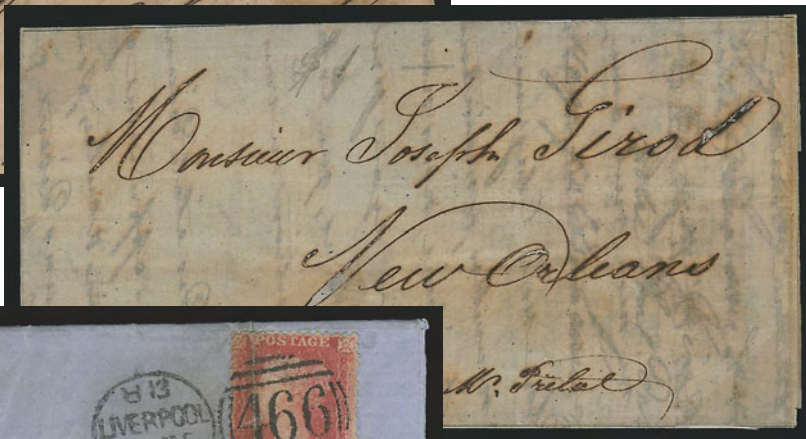 Monsieur Joseph Girod
New Orleans
Mr. Prélat
POSTAGE
13
LIVERPOOL
466